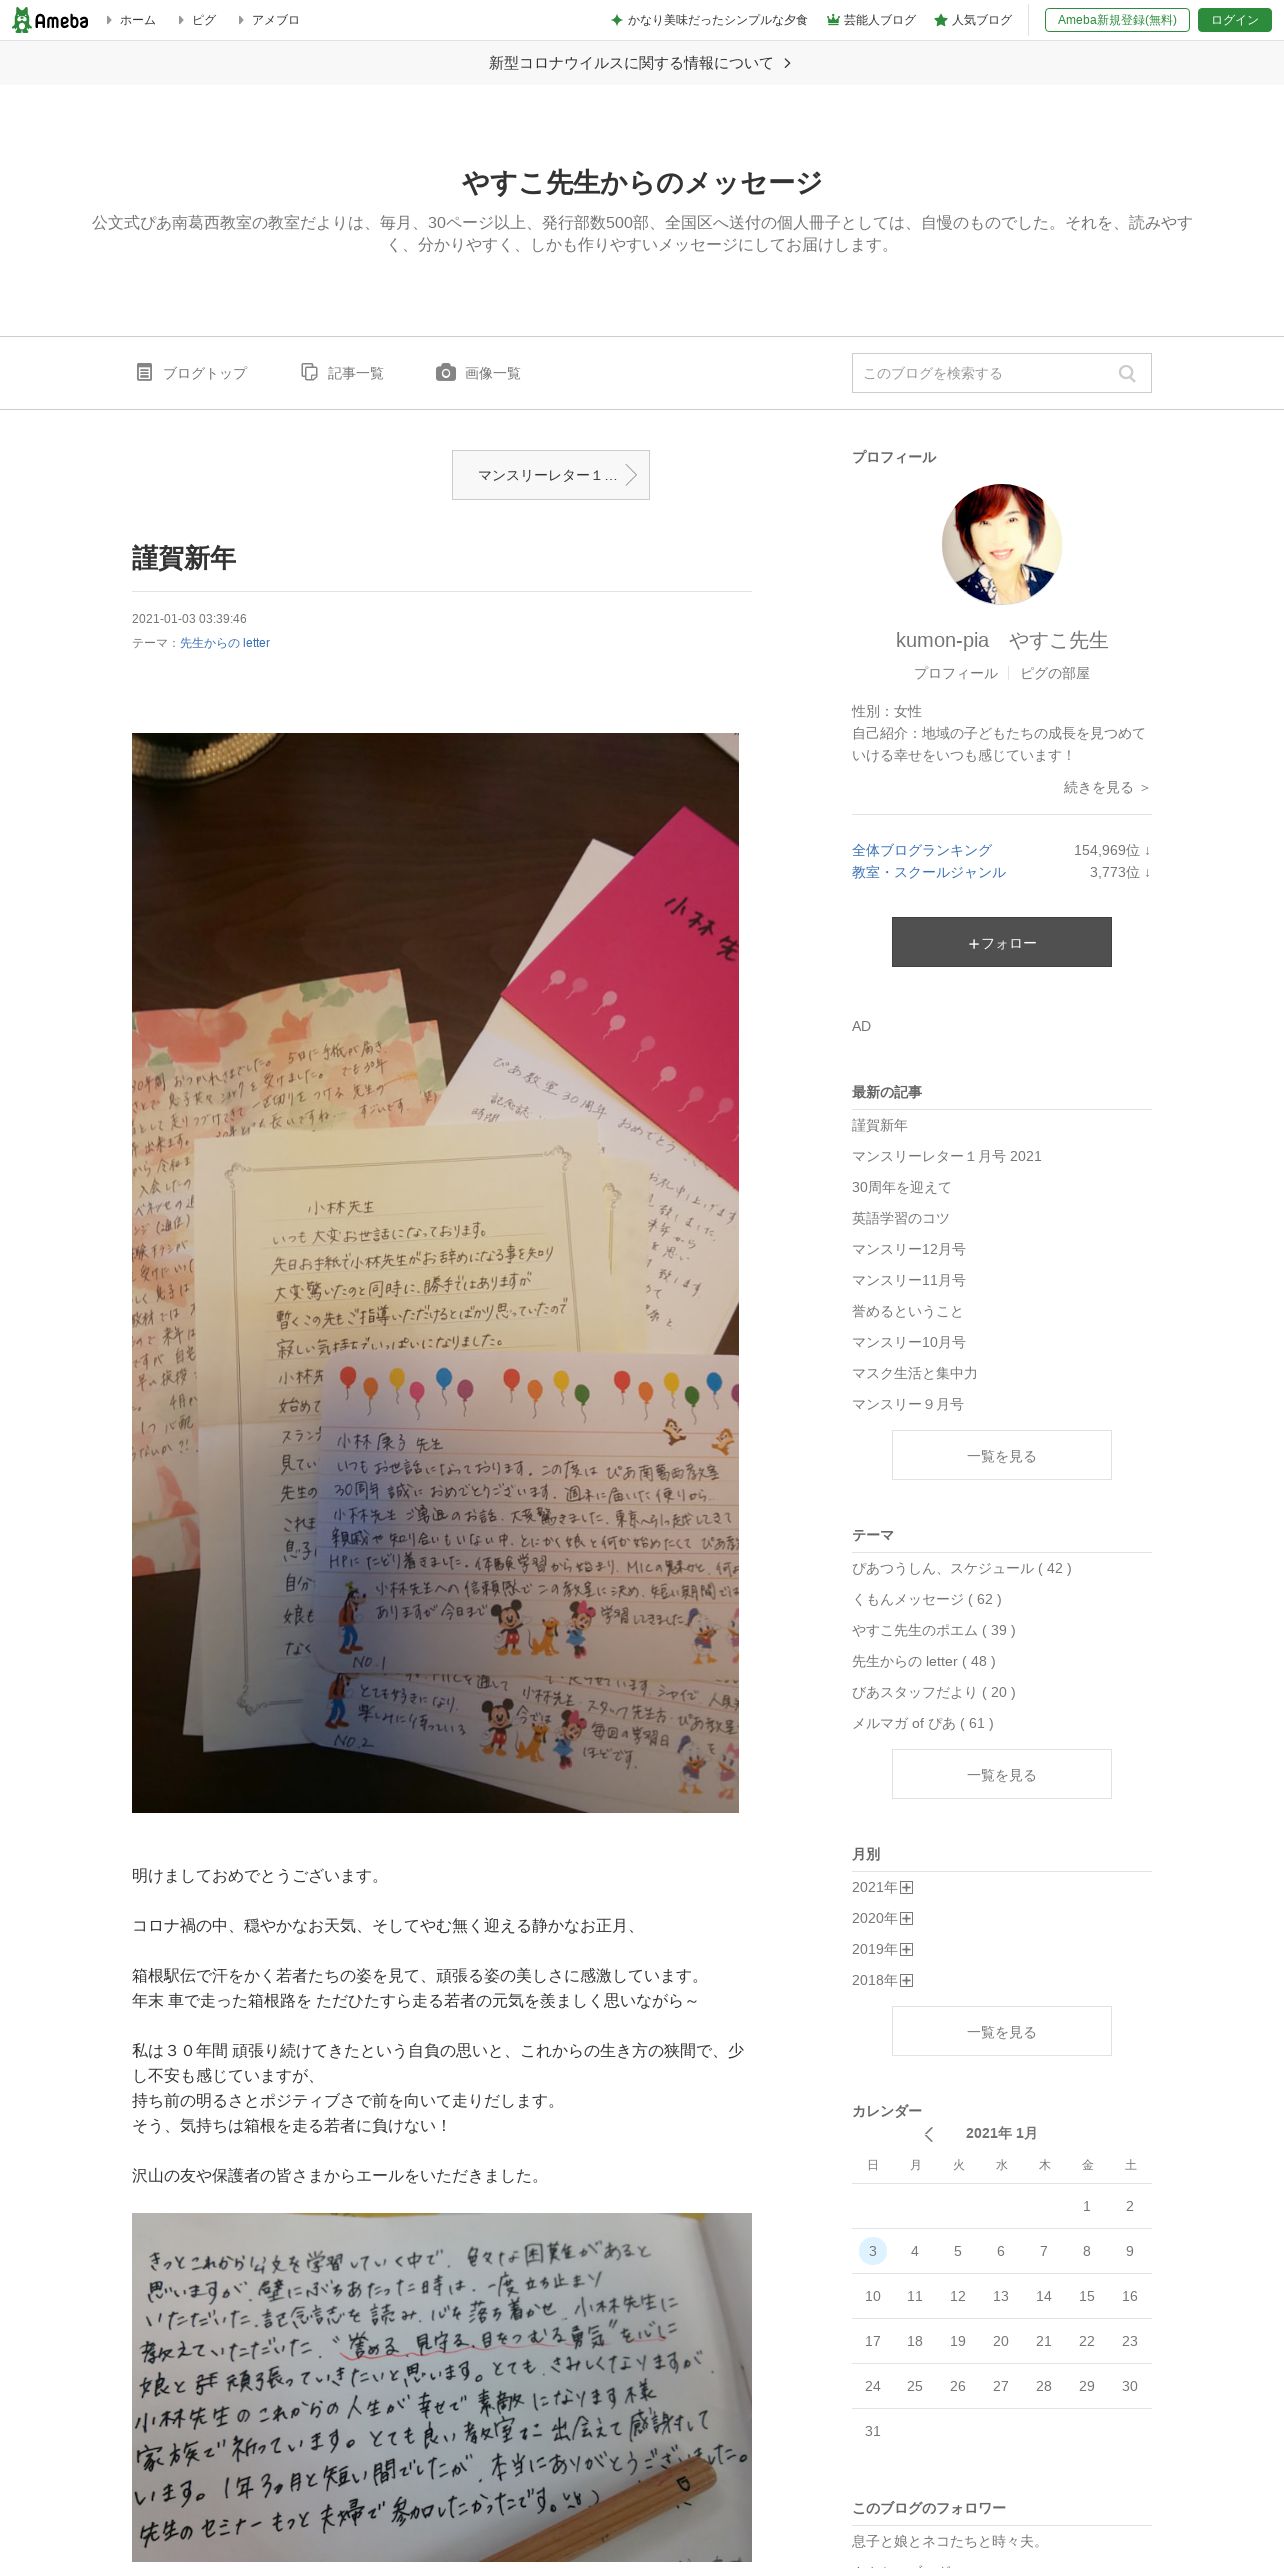 Ameba
ホーム
ピグ
アメブロ
かなり美味だったシンプルな夕食
芸能人ブログ
人気ブログ
Ameba新規登録(無料)
ログイン
新型コロナウイルスに関する情報について
やすこ先生からのメッセージ
公文式ぴあ南葛西教室の教室だよりは、毎月、30ページ以上、発行部数500部、全国区へ送付の個人冊子としては、自慢のものでした。それを、読みやす
く、分かりやすく、しかも作りやすいメッセージにしてお届けします。
ブログトップ
記事一覧
画像一覧
このブログを検索する
マンスリーレター１…
謹賀新年
2021-01-03 03:39:46
テーマ：先生からの letter
小林先
ぴあ教室30周年 おめでとう
記念誌
時間
30年間 おつかれさまでした。 5日に手紙が届き、
小林先生
いつも大変お世話になっております。
先日お手紙で小林先生がお辞めになる事を知り
大変驚いたのと同時に、勝手ではありますが
暫くこの先もご指導いただけるとばかり思っていたので
寂しい気持ちでいっぱいになりました。
小林康子先生
いつもお世話になっております。この度は ぴあ南葛西教室
30周年 誠におめでとうございます。週末に届いた便りから…
小林先生 ご勇退のお話、大変驚きました。東京へ引っ越してきて
親戚や知り合いもいない中、とにかく娘と何か始めたくて ぴあ教室
HPにたどり着きました。体験学習から始まり、MICの魅力、何より
小林先生への信頼感でこの教室に決め、短い期間ではあ
りますが今日まで 学習してきました。
NO.1
とても好きになり、
楽しみに待っている
今では
毎回の学習日
ほどです。
NO.2
明けましておめでとうございます。
コロナ禍の中、穏やかなお天気、そしてやむ無く迎える静かなお正月、
箱根駅伝で汗をかく若者たちの姿を見て、頑張る姿の美しさに感激しています。
年末 車で走った箱根路を ただひたすら走る若者の元気を羨ましく思いながら～
私は３０年間 頑張り続けてきたという自負の思いと、これからの生き方の狭間で、少
し不安も感じていますが、
持ち前の明るさとポジティブさで前を向いて走りだします。
そう、気持ちは箱根を走る若者に負けない！
沢山の友や保護者の皆さまからエールをいただきました。
きっとこれから公文を学習していく中で、色々な困難があると
思いますが、壁にぶちあたった時は、一度立ち止まり
いただいた記念誌を読み、心を落ち着かせ、小林先生に
教えていただいた、“誉める、見守る、目をつむる勇気”を心に
娘と 共に頑張っていきたいと思います。とても、さみしくなりますが、
小林先生のこれからの人生が幸せで素敵になります様
家族で祈っています。とても良い教室に出会えて感謝して
います。1年3ヶ月と短い間でしたが、本当にありがとうございました。
先生のセミナーもっと夫婦で参加したかったです。
プロフィール
kumon-pia　やすこ先生
プロフィール
ピグの部屋
性別：女性
自己紹介：地域の子どもたちの成長を見つめて
いける幸せをいつも感じています！
続きを見る ＞
全体ブログランキング 154,969位 ↓
教室・スクールジャンル 3,773位 ↓
+フォロー
AD
最新の記事
謹賀新年
マンスリーレター１月号 2021
30周年を迎えて
英語学習のコツ
マンスリー12月号
マンスリー11月号
誉めるということ
マンスリー10月号
マスク生活と集中力
マンスリー９月号
一覧を見る
テーマ
ぴあつうしん、スケジュール ( 42 )
くもんメッセージ ( 62 )
やすこ先生のポエム ( 39 )
先生からの letter ( 48 )
びあスタッフだより ( 20 )
メルマガ of ぴあ ( 61 )
一覧を見る
月別
2021年
2020年
2019年
2018年
一覧を見る
カレンダー
2021年 1月
日 月 火 水 木 金 土
1 2
3 4 5 6 7 8 9
10 11 12 13 14 15 16
17 18 19 20 21 22 23
24 25 26 27 28 29 30
31
このブログのフォロワー
息子と娘とネコたちと時々夫。